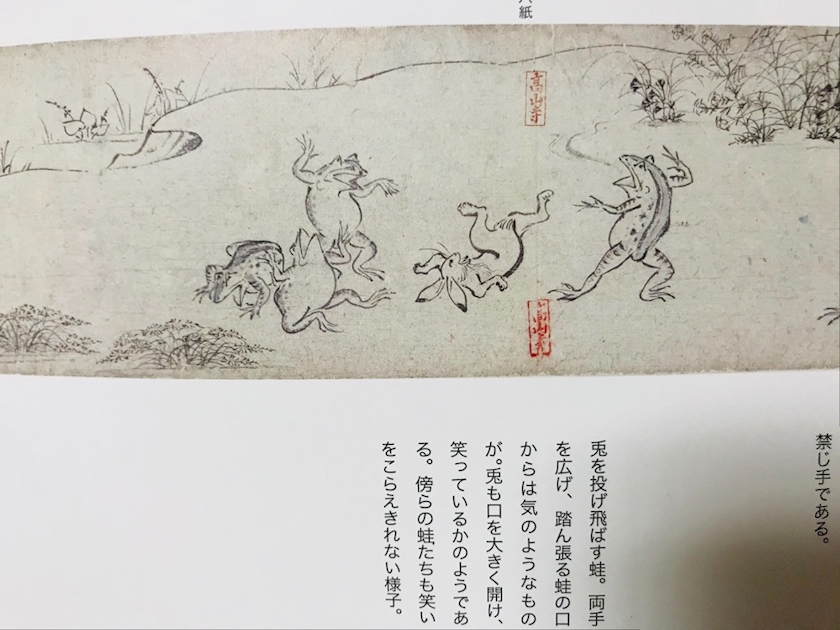 紙
高山寺
高山寺
禁じ手である。
兎を投げ飛ばす蛙。両手
を広げ、踏ん張る蛙の口
からは気のようなもの
が。兎も口を大きく開け、
笑っているかのようであ
る。傍らの蛙たちも笑い
をこらえきれない様子。